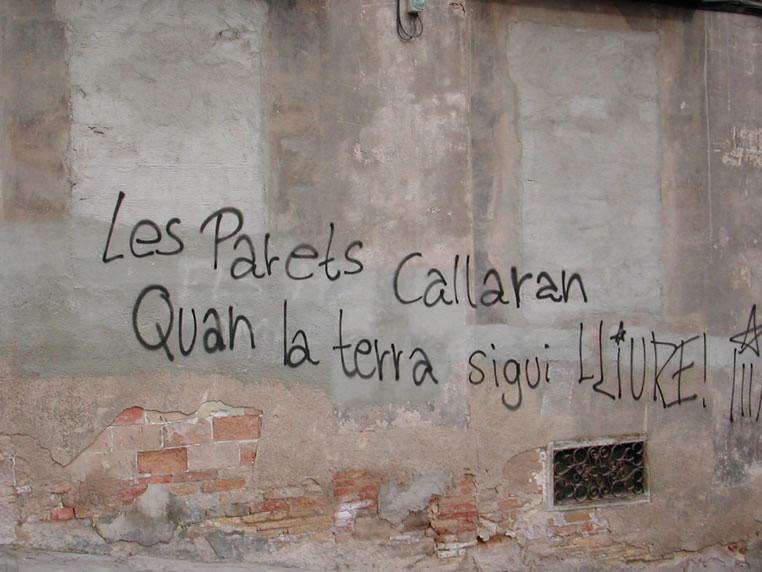 Les Parets Callaran
Quan la terra sigui LLIURE!